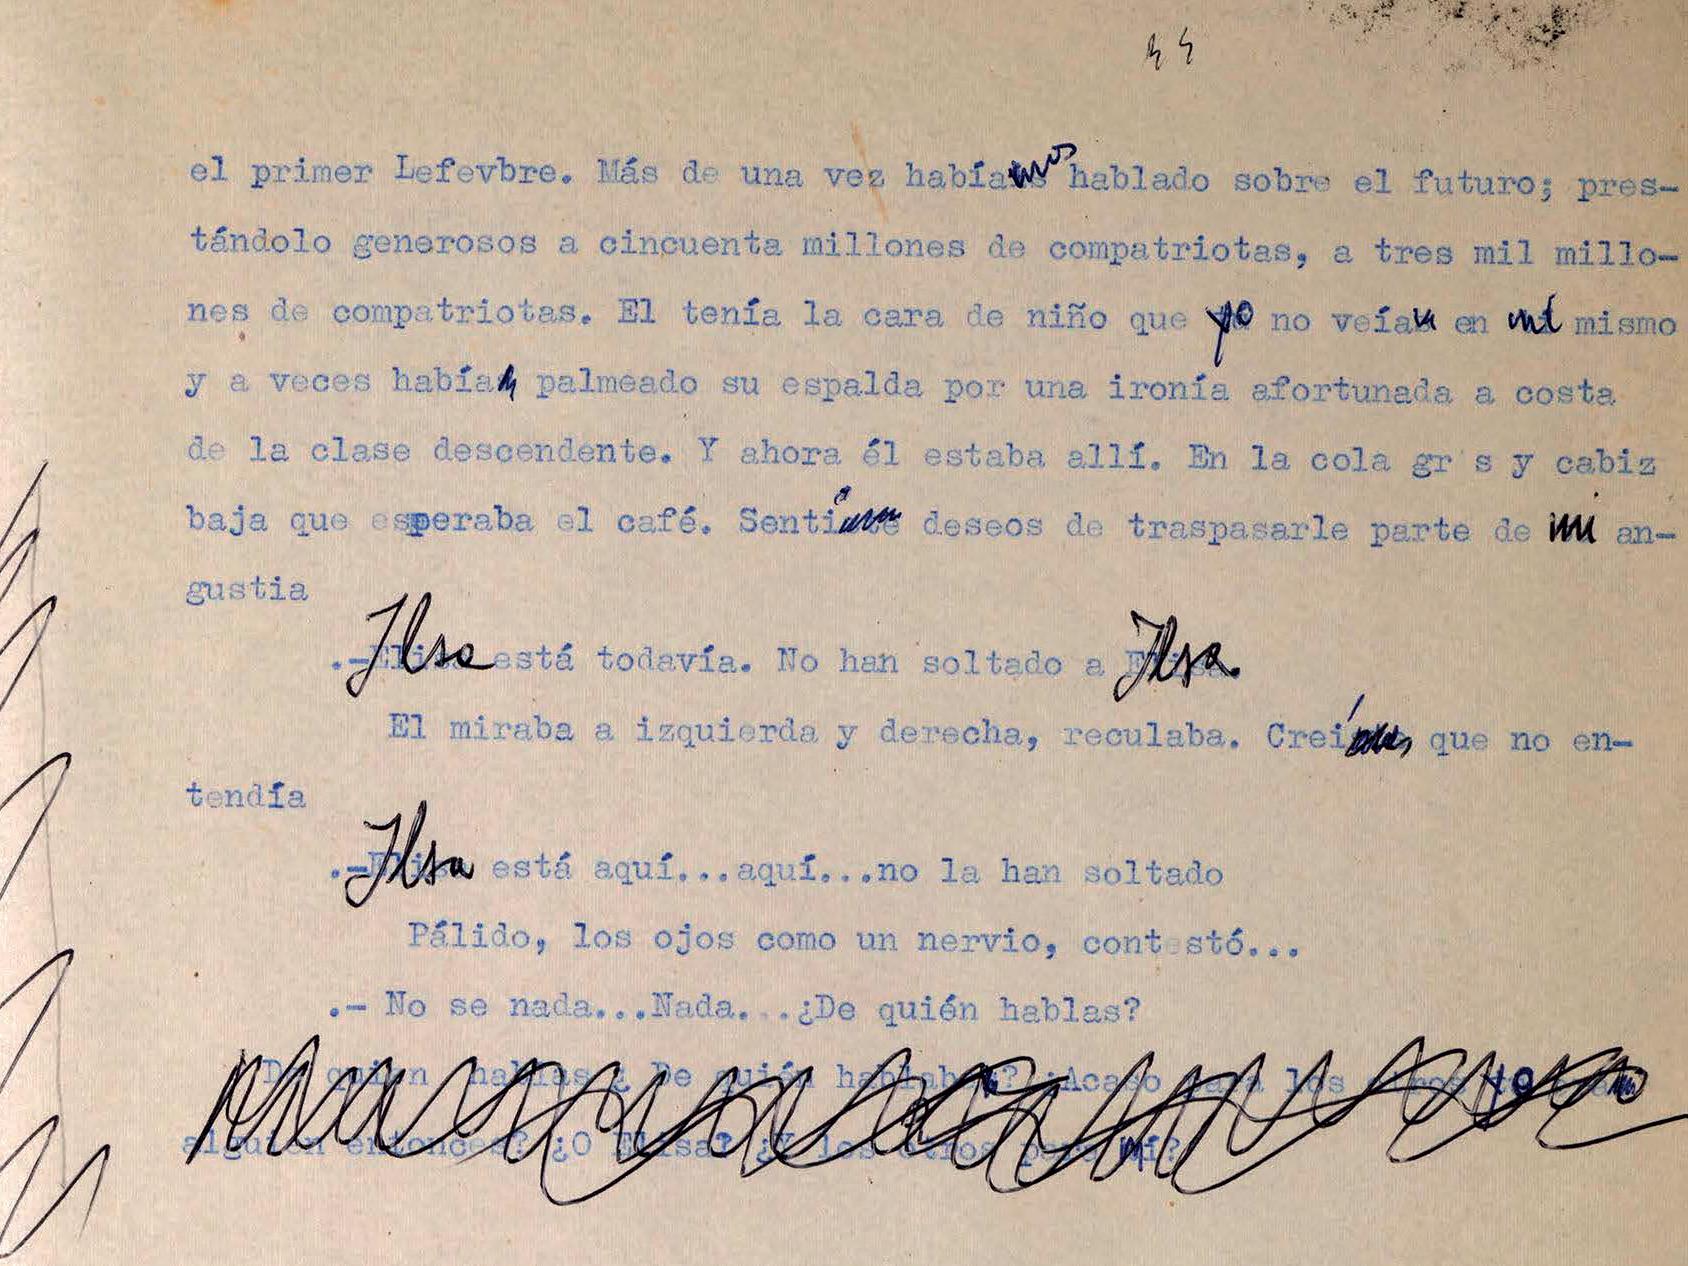 el primer Lefevbre. Más de una vez habíamos hablado sobre el futuro; pres-
tándolo generosos a cincuenta millones de compatriotas, a tres mil millo-
nes de compatriotas. El tenía la cara de niño que yo no veía en mí mismo
y a veces había palmeado su espalda por una ironía afortunada a costa
de la clase descendente. Y ahora él estaba allí. En la cola gr s y cabiz
baja que esperaba el café. Sentí deseos de traspasarle parte de mi an-
gustia
.-Ilsa está todavía. No han soltado a Ilsa.
El miraba a izquierda y derecha, reculaba. Creí que no en-
tendía
.-Ilsa está aquí...aquí...no la han soltado
Pálido, los ojos como un nervio, contestó...
.- No se nada...Nada...¿De quién hablas?
De quien hablas ¿ De quién hablaba? ¿Acaso para los otros yo
alguien entonces? ¿O Elisa? ¿Y los otros para mí?